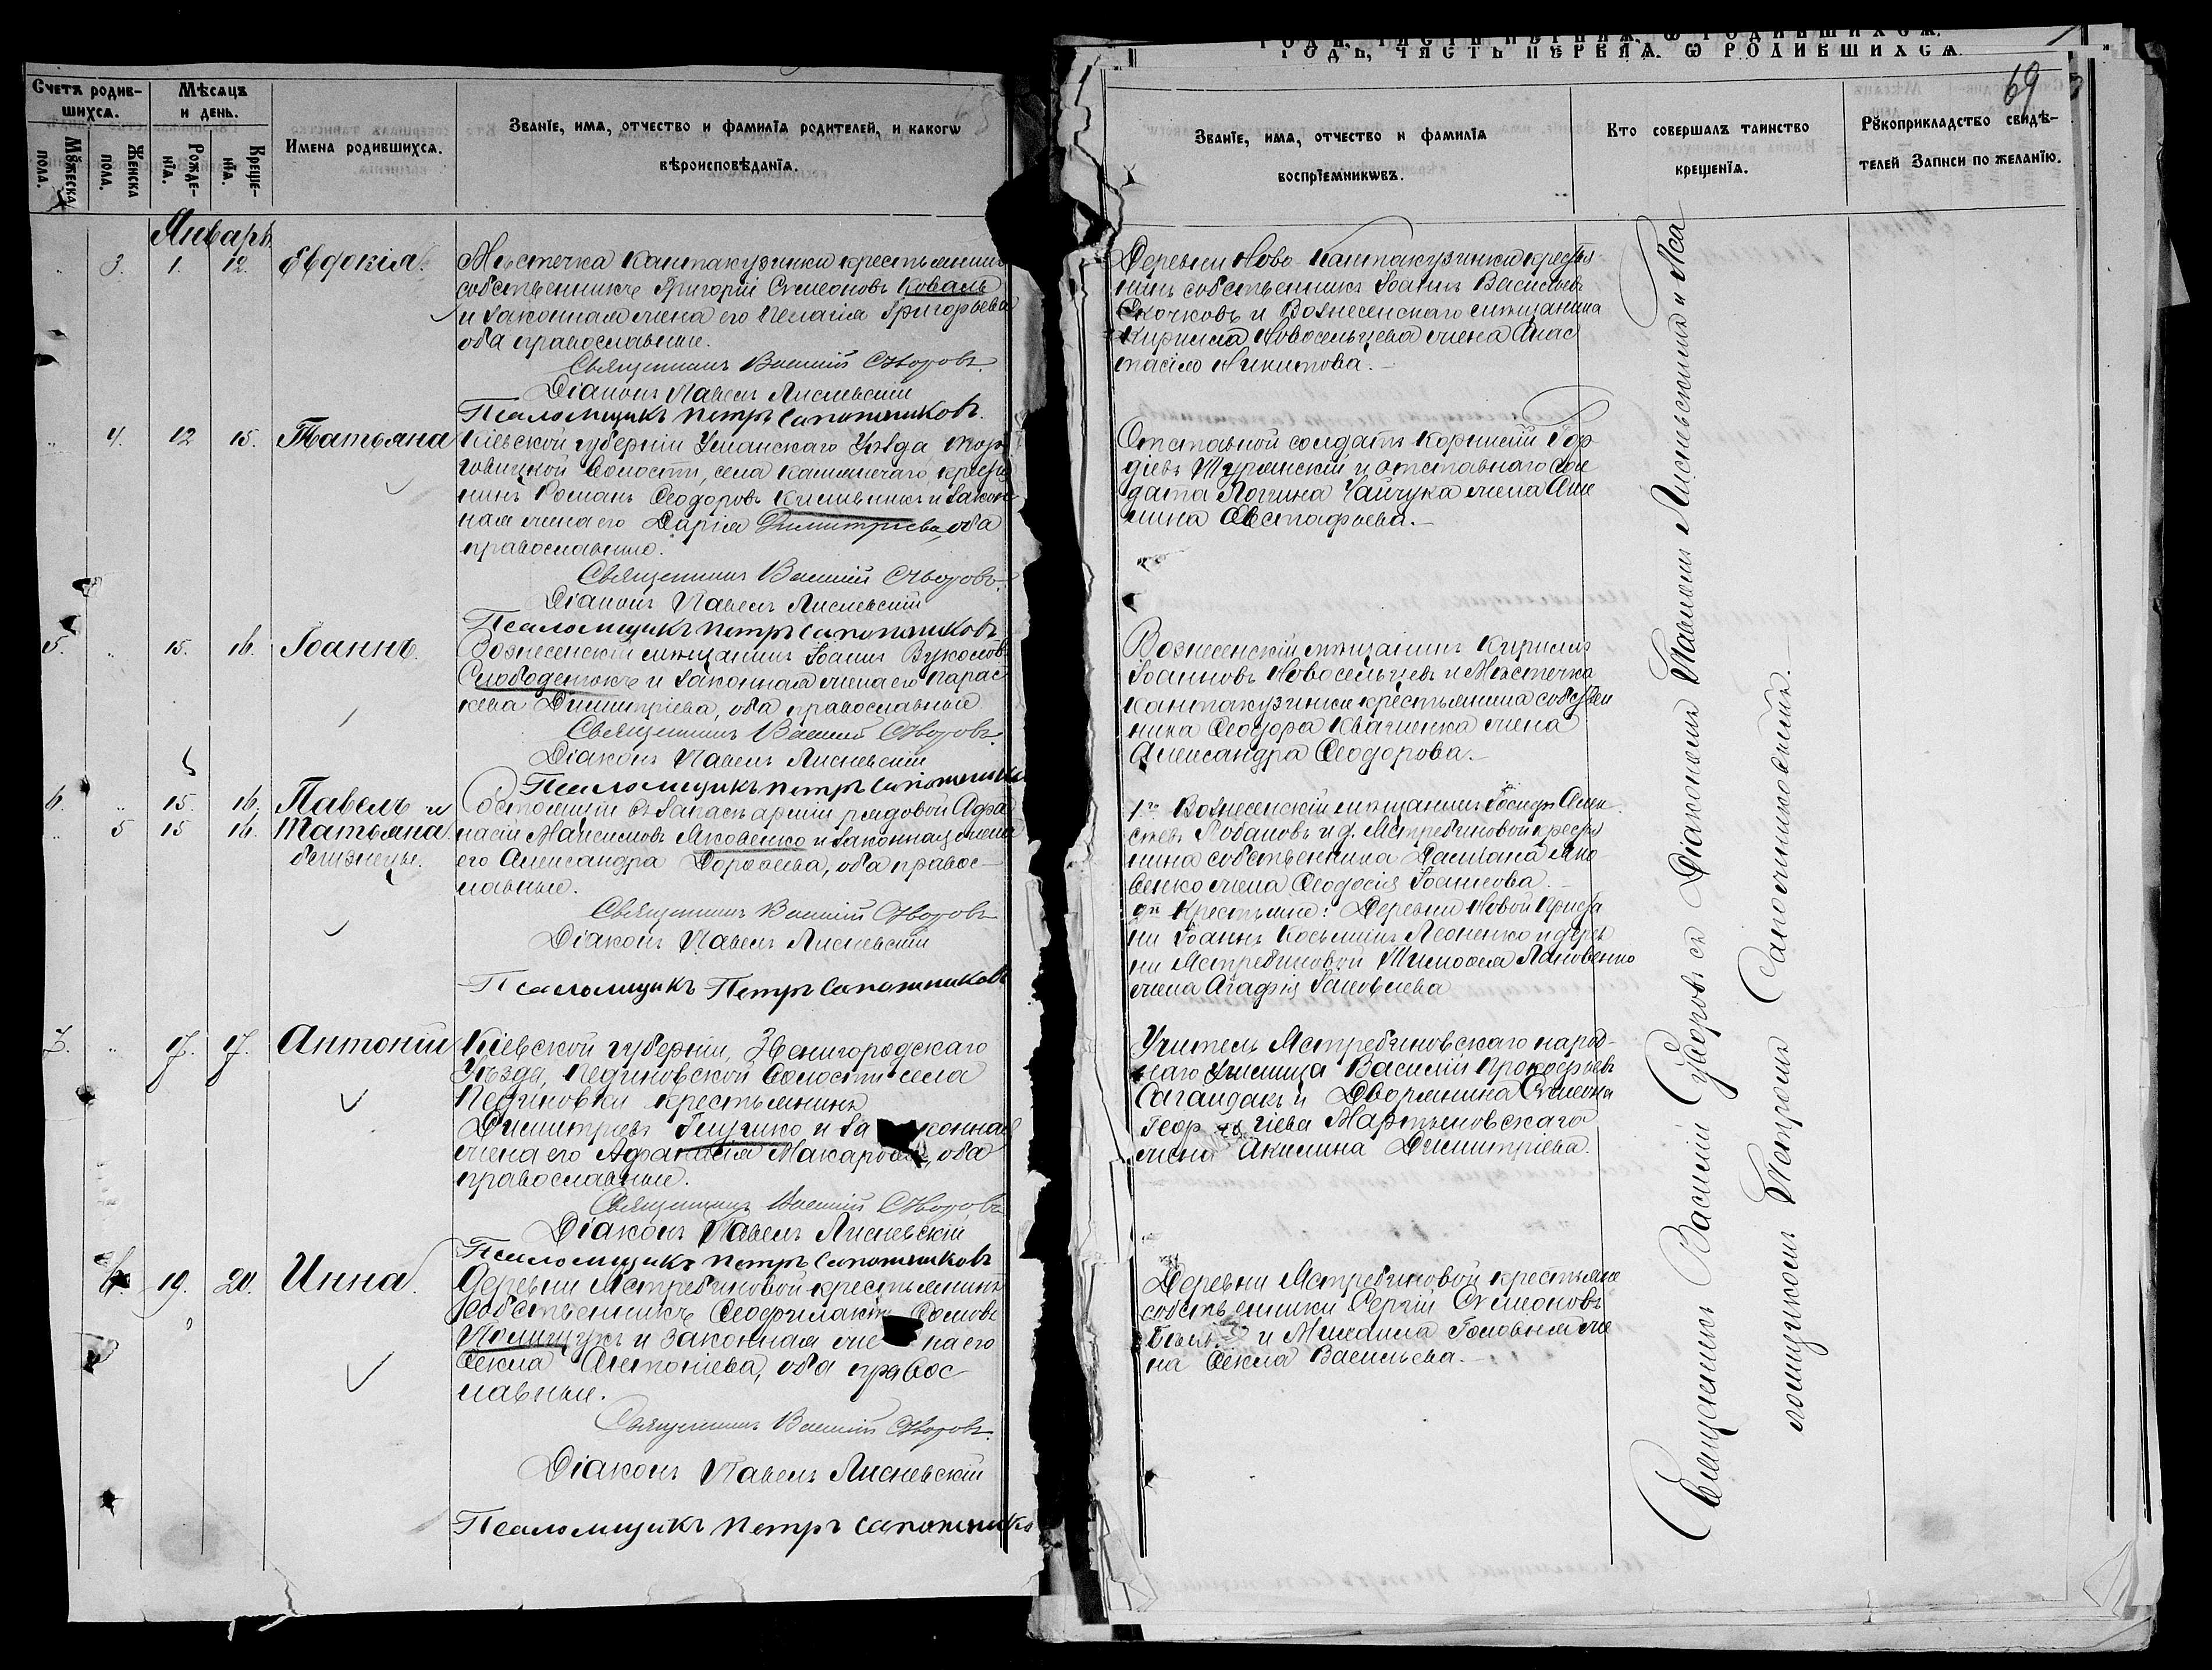 Счетъ родив-
шихсѧ.
Мꙋжеска
пола.
Женска
пола.
Мѣсяцъ
и день.
Рожде-
нїѧ.
Креще-
нїѧ.
Имена родившихсѧ.
Званїе, имѧ, отчество и фамилїѧ родителей, и какогѡ
вѣроисповѣданїѧ.
Январь
3. 1. 12. Евдокія.
Мѣстечка Кантакузинки крестьянинъ
собственникъ Григорій Симеоновъ Коваль
и законная жена его Пелагія Григорьева
оба православные.
Священникъ Василій
Діаконъ Павелъ Лисневскій
Псаломщикъ Петръ Сапожниковъ.
4. 12 15. Татьяна
Кіевской губерніи Уманскаго Уѣзда, Тор
говицкой Волости, села крестья
нинъ Романъ Ѳеодоровъ и закон
ная жена его Дарія Димитріева, оба
православные.
Священникъ Василій
Діаконъ Павелъ Лисневскій
Псаломщикъ Петръ Сапожниковъ
5. 15. 16. Іоаннъ.
Вознесенскій мѣщанинъ Іоаннъ Вуколовъ
Слободенюкъ и законная жена его Парас
кева Димитріева, оба православные.
Священникъ Василій
Діаконъ Павелъ Лисневскій
Псаломщикъ Петръ Сапожников
6. 15. 16. Павелъ и
5 15 16. Татьяна
близнецы.
Состоящій въ запасѣ арміи рядовой Афа
насій Максимовъ Яковенко и законная жена
его Александра Дороѳеева, оба правос-
лавные.
Священникъ Василій
Діаконъ Павелъ Лисневскій
Псаломщикъ Петръ Сапожниковъ
7. 17. 17. Антоній
Кіевской губерніи, Звенигородскаго
Уѣзда, Пединовской Волости села
Пединовки крестьянинъ
Димитрій и законная
жена его Афанасія Макарова, оба
православные.
Священникъ Василій
Діаконъ Павелъ Лисневскій
Псаломщикъ Петръ Сапожниковъ
6. 19. 20. Инна.
Деревни Ястребиновой крестьянинъ
собственникъ Ѳеофилактъ
Полищукъ и законная жена его
Ѳекла Антоніева, оба правос
лавные.
Священникъ Василій
Діаконъ Павелъ Лисневскій
Псаломщикъ Петръ Сапожнико
ГОДЪ, ЧАСТЬ ПЕРВАѦ. Ѡ РОДИВШИХСѦ.
69
Званїе, имѧ, отчество и фамилїѧ
воспрїемникѡвъ.
Кто совершалъ таинство
крещенїѧ.
Рꙋкоприкладство свидѣ-
телей Записи по желанїю.
Деревни Ново-Кантакузинки крестья
нинъ собственникъ Іоаннъ Васильевъ
Скочковъ и Вознесенскаго мѣщанина
Кирилла Новосельцева жена Анас
тасія Никитова.
Отставной солдатъ Корнилій Гор
діевъ Туранскій и отставнаго сол
дата Логгина Чайчука жена Аки
лина Евстафьева.
Вознесенскій мѣщанинъ Кириллъ
Іоанновъ Новосельцевъ и Мѣстечка
Кантакузинки крестьянина собствен
ника Ѳеодора Кваченка жена
Александра Ѳеодорова.
1го Вознесенскій мѣщанинъ Іосифъ Алек
сѣевъ Лобановъ и д. Ястребиновой кресть
янина собственника Даміана Яко
венко жена Ѳеодосія Іоаннова.
2й Крестьяне: Деревни Новой Приста
ни Іоаннъ Косьминъ Леоненко и дерев
ни Ястребиновой Тимоѳея Яковенко
жена Агафія Іаковлева
Учитель Ястребиновскаго народ-
наго училища Василій Прокофьевъ
Сагайдакъ и Дворянина Симеона
Георгіева Мартыновскаго
жена Акилина Димитріева.
Деревни Ястребиновой крестьяне
собственники Сергій Симеоновъ
и Михаила Головня же
на Ѳекла Васильева.
Священникъ Василій съ Діакономъ Павломъ Лисневскимъ и Пса
ломщикомъ Петромъ Сапожниковымъ.